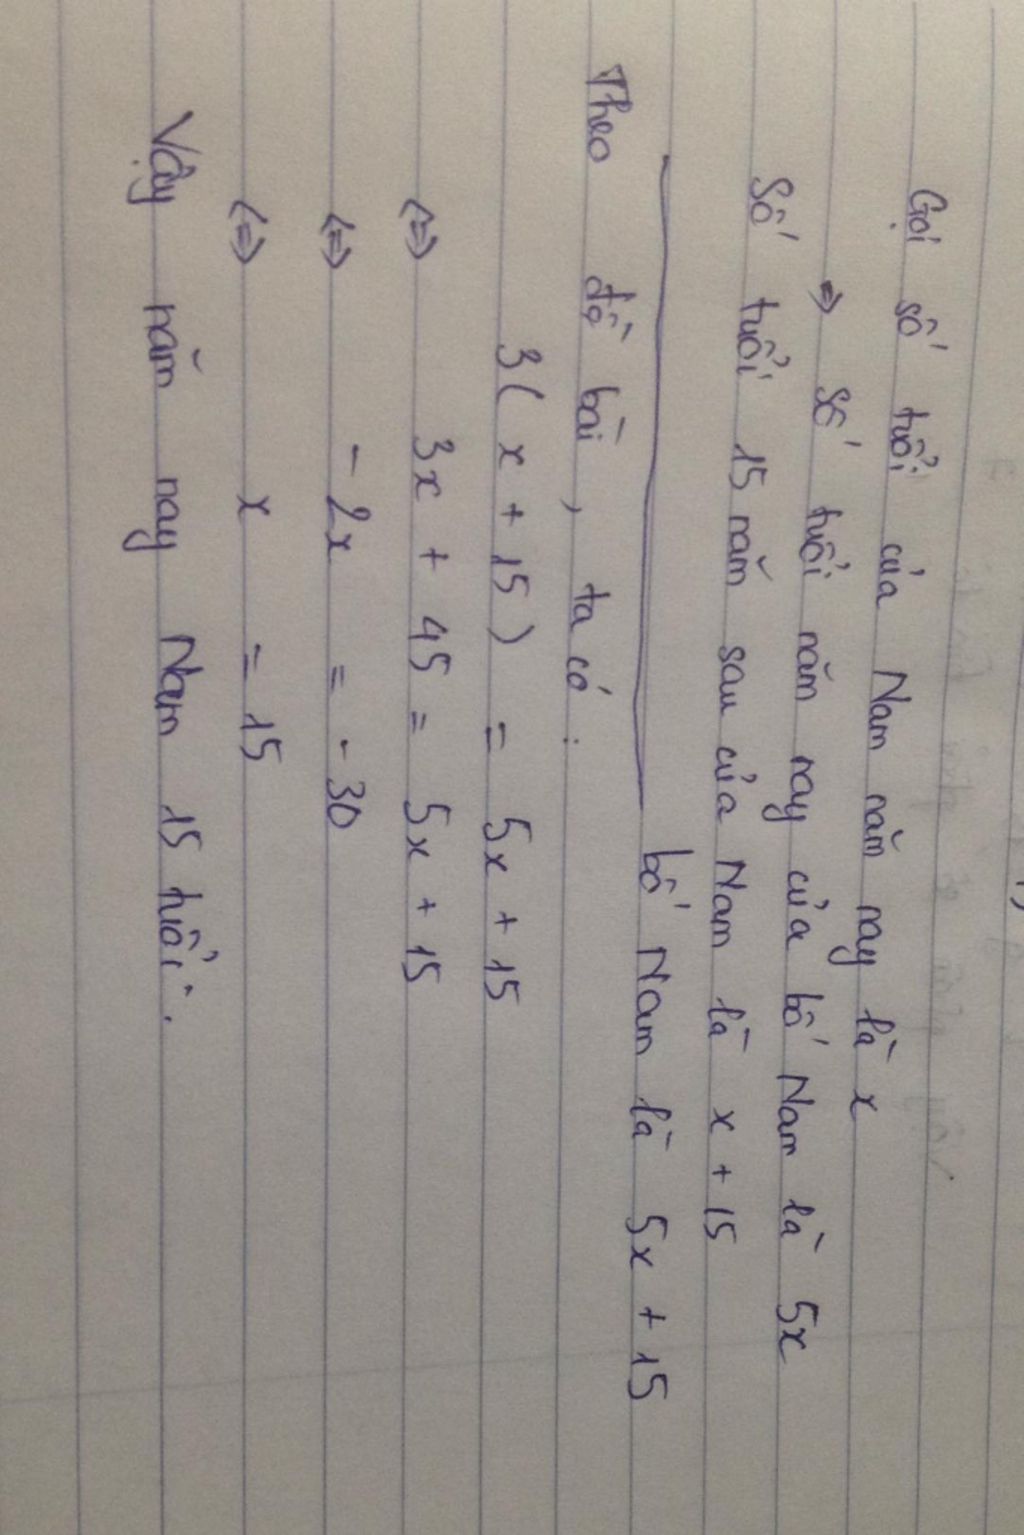 Gọi số tuổi của Nam năm nay là x
=> số tuổi năm nay của bố Nam là 5x
Số tuổi 15 năm sau của Nam là x + 15
bố Nam là 5x + 15
Theo đề bài, ta có:
3(x + 15) = 5x + 15
<=> 3x + 45 = 5x + 15
<=> - 2x = - 30
<=> x = 15
Vậy năm nay Nam 15 tuổi.